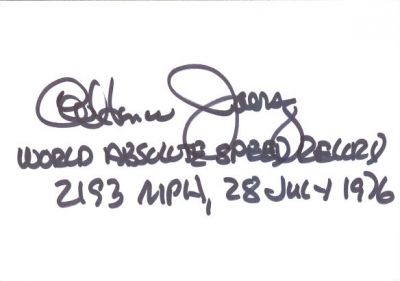 Joersz
WORLD ABSOLUTE SPEED RECORD
2193 MPH, 28 JULY 1976